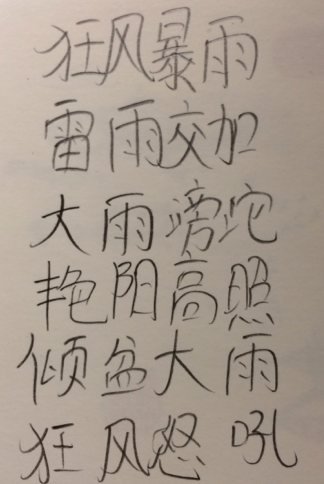 狂风暴雨
雷雨交加
大雨滂沱
艳阳高照
倾盆大雨
狂风怒吼